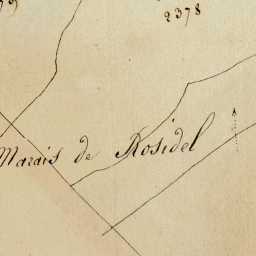 2378
Marais de Rosidel